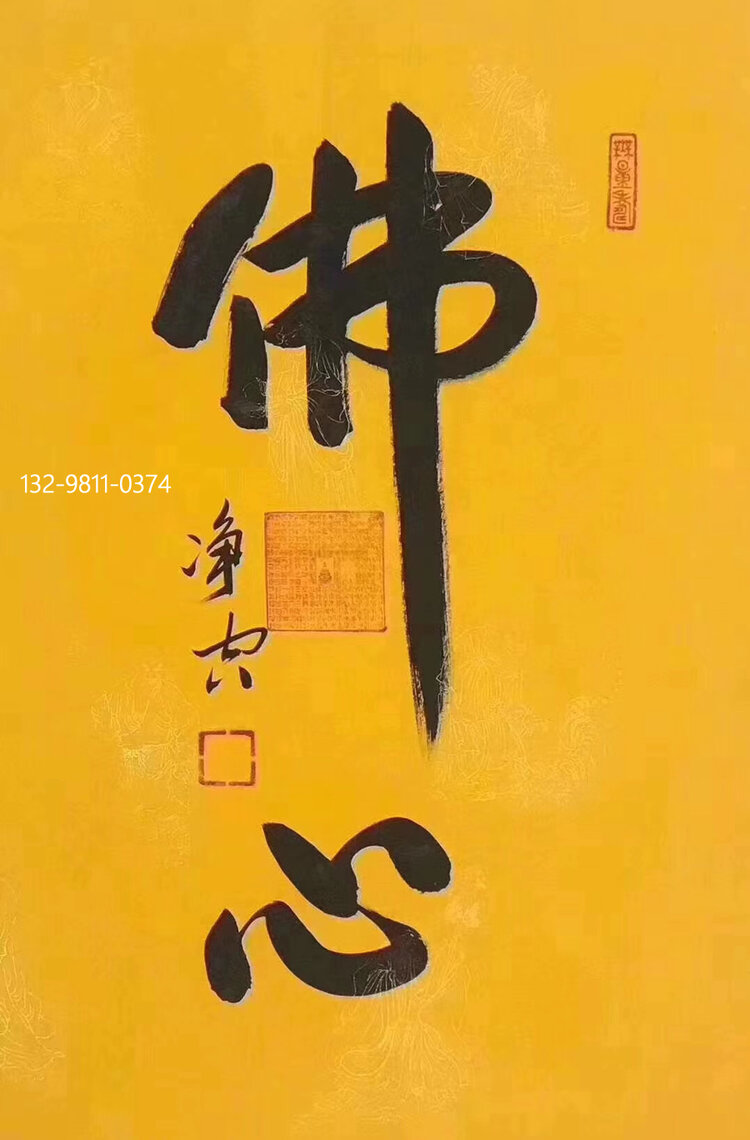 佛心
132-9811-0374
净空